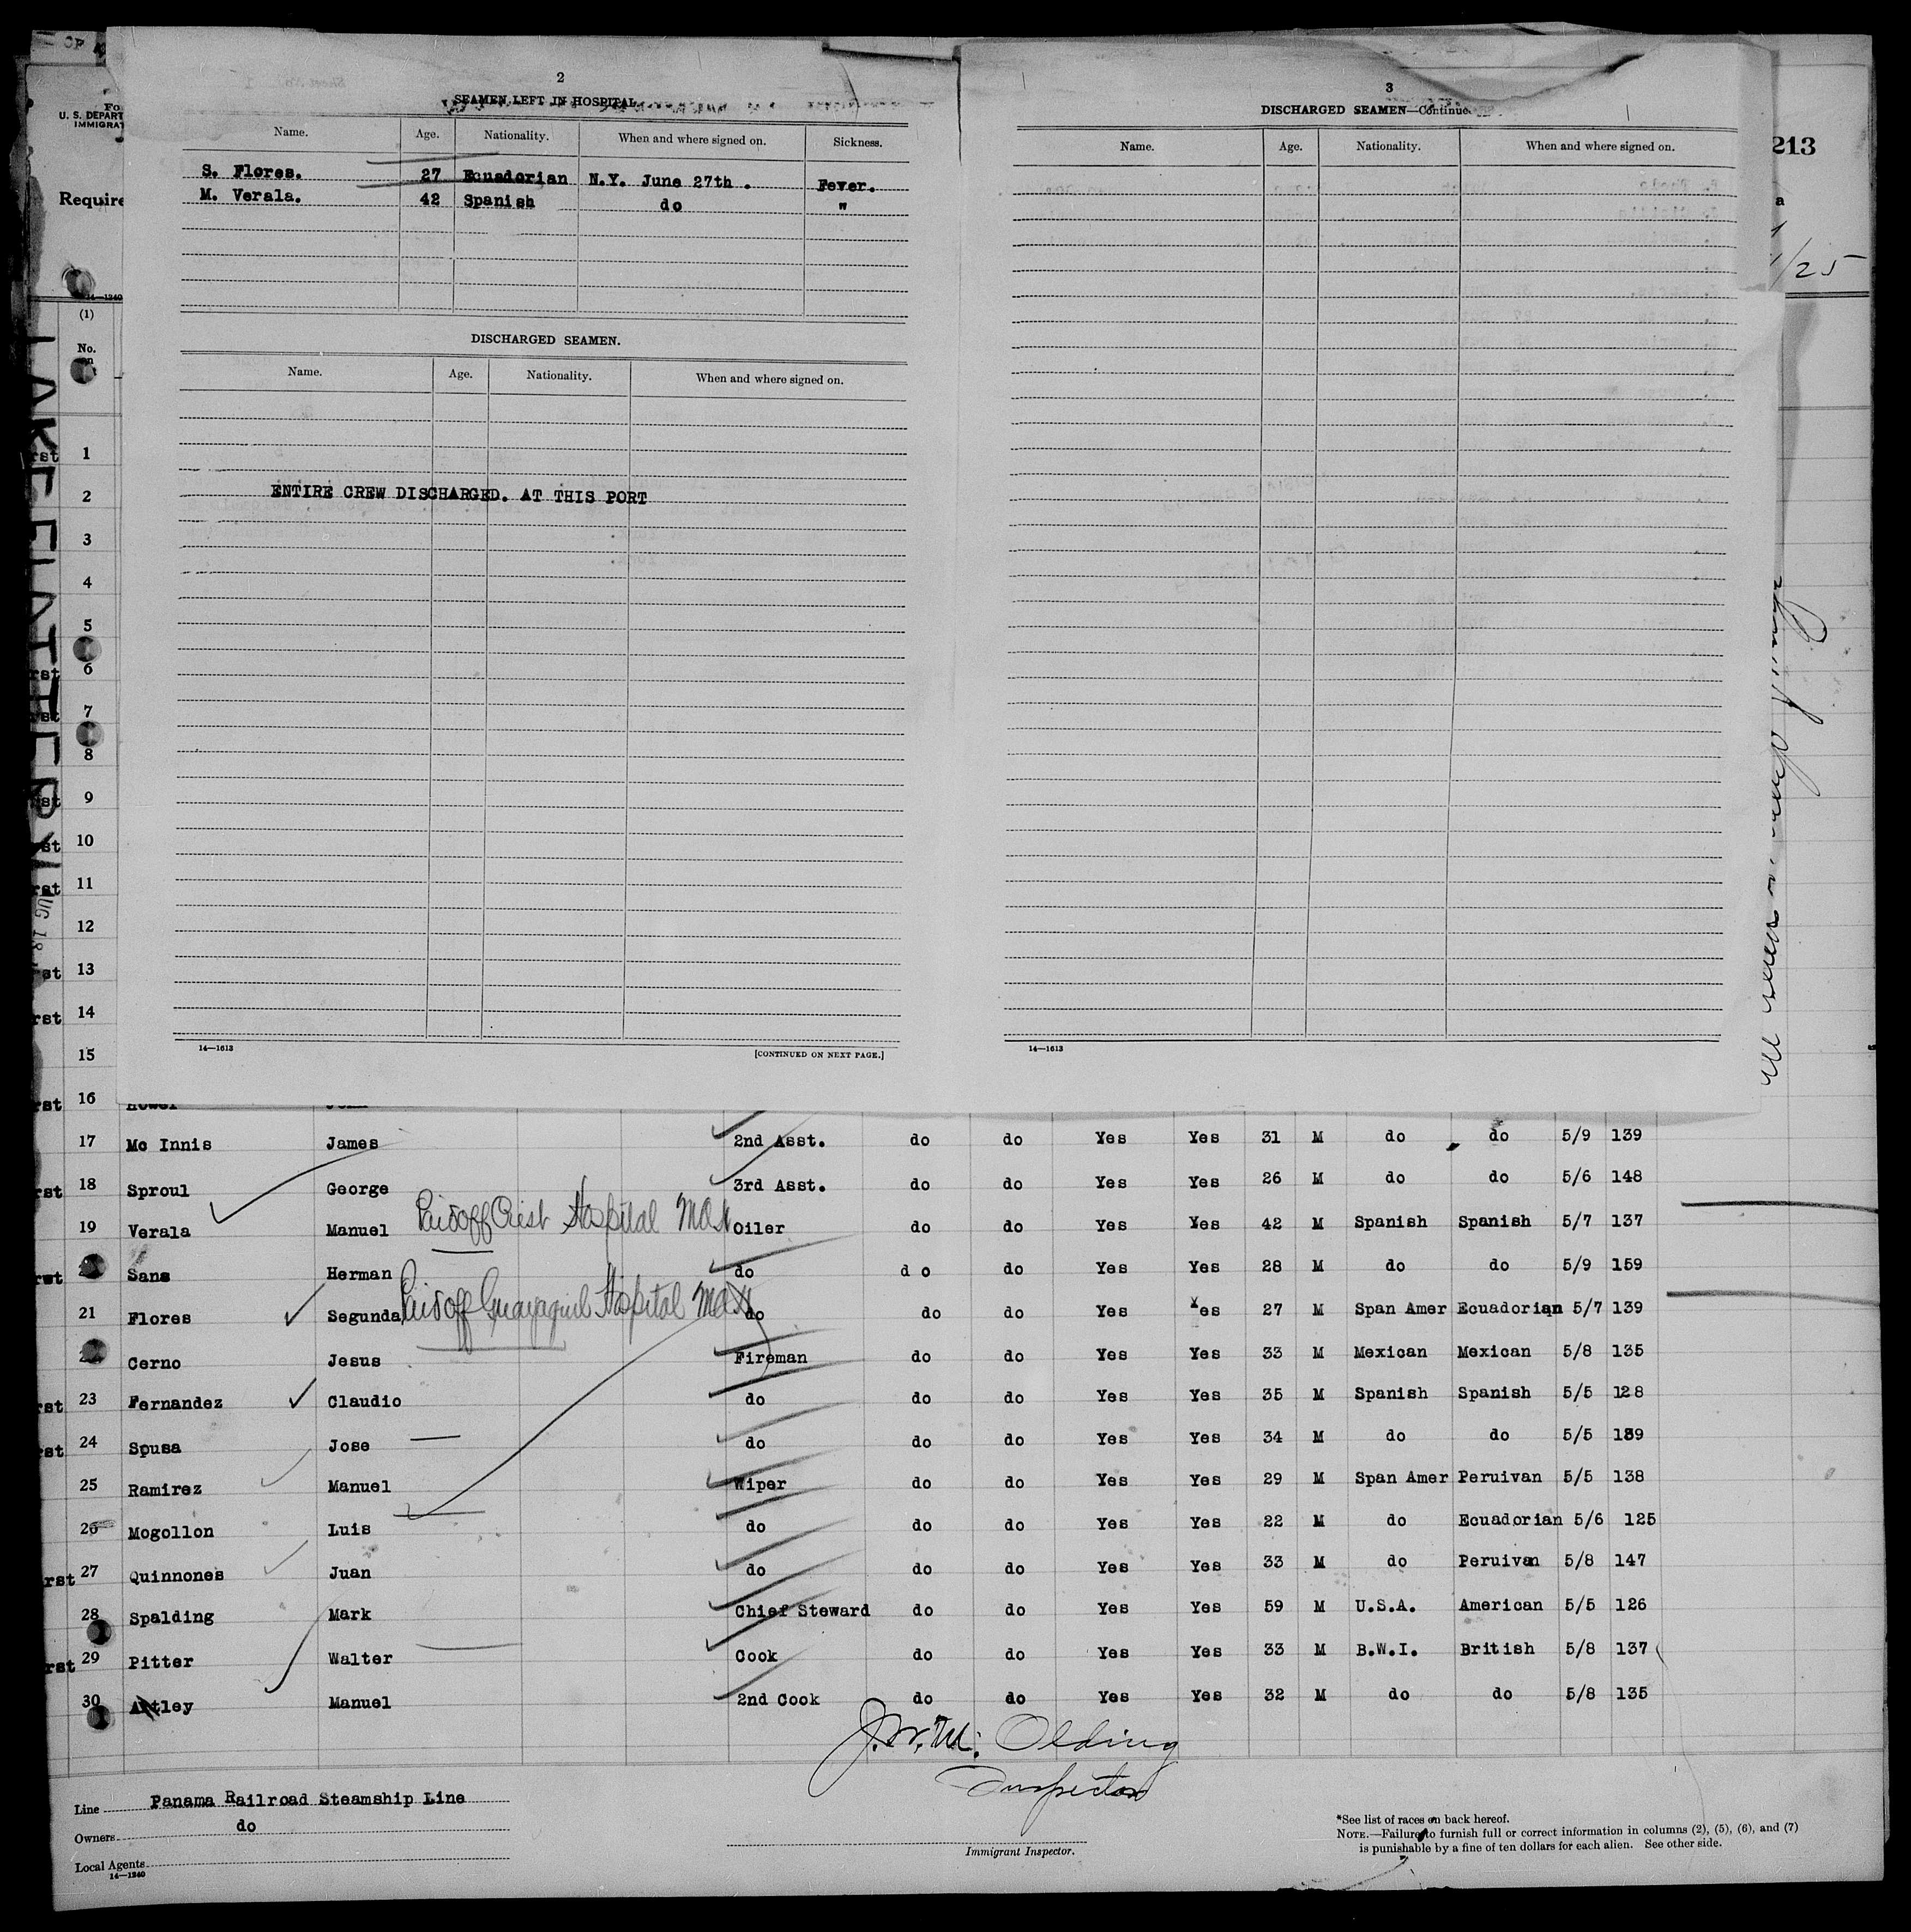 2
SEAMEN LEFT IN HOSPITAL
Name. Age. Nationality. When and where signed on. Sickness.
S. Flores. 27 Ecuadorian N.Y. June 27th . Fever.
M. Verala. 42 Spanish do "
DISCHARGED SEAMEN.
Name. Age. Nationality. When and where signed on.
ENTIRE CREW DISCHARGED. AT THIS PORT
14—1613 [CONTINUED ON NEXT PAGE.]
3
DISCHARGED SEAMEN—Continue
Name. Age. Nationality. When and where signed on.
14—1613
Fo
U. S. DEPART
IMMIGRAT
Require
213
a
1/25
14—1240
(1)
No.
LAKE FLATTERY
AUG 18
rst 1
2
3
4
5
rst 6
rst 7
8
rst 9
rst 10
rst 11
12
rst 13
rst 14
15
rst 16
17 Mc Innis James 2nd Asst. do do Yes Yes 31 M do do 5/9 139
rst 18 Sproul George 3rd Asst. do do Yes Yes 26 M do do 5/6 148
19 Verala Manuel Paid off Hospital Oiler do do Yes Yes 42 M Spanish Spanish 5/7 137
rst Sans Herman do d o do Yes Yes 28 M do do 5/9 159
21 Flores Segunda Paid off Guayaquil Hospital do do do Yes Yes 27 M Span Amer Ecuadorian 5/7 139
Cerno Jesus Fireman do do Yes Yes 33 M Mexican Mexican 5/8 135
rst 23 Fernandez Claudio do do do Yes Yes 35 M Spanish Spanish 5/5 128
rst 24 Spusa Jose do do do Yes Yes 34 M do do 5/5 139
25 Ramirez Manuel Wiper do do Yes Yes 29 M Span Amer Peruivan 5/5 138
26 Mogollon Luis do do do Yes Yes 22 M do Ecuadorian 5/6 125
rst 27 Quinnones Juan do do do Yes Yes 33 M do Peruivan 5/8 147
28 Spalding Mark Chief Steward do do Yes Yes 59 M U.S.A. American 5/5 126
rst 29 Pitter Walter Cook do do Yes Yes 33 M B.W.I. British 5/8 137
30 Artley Manuel 2nd Cook do do Yes Yes 32 M do do 5/8 135
Olding
Inspector
Line Panama Railroad Steamship Line
Owners do
Local Agents
14—1240
Immigrant Inspector.
*See list of races on back hereof.
NOTE.—Failure to furnish full or correct information in columns (2), (5), (6), and (7)
is punishable by a fine of ten dollars for each alien. See other side.